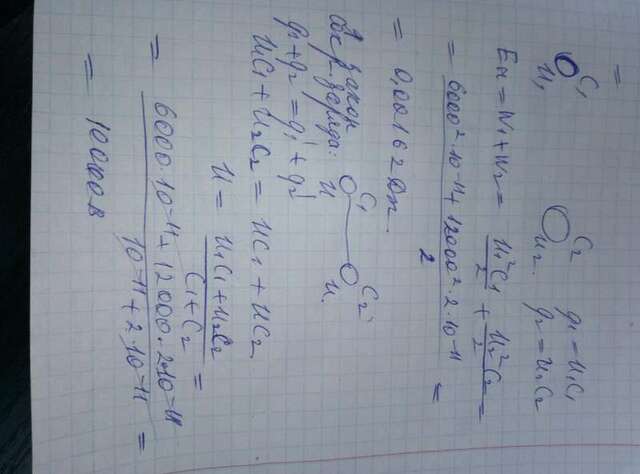 =
C₁ C₂ q₁ = U₁C₁
U₁ U₂ q₂ = U₂C₂
Eн = W₁ + W₂ = U₁²C₁/2 + U₂²C₂/2 =
= (6000²·10⁻¹¹ + 12000²·2·10⁻¹¹)/2 =
= 0,00162 Дж.
закон
сохр. заряда: C₁ C₂
q₁ + q₂ = q₁' + q₂' U U
U₁C₁ + U₂C₂ = UC₁ + UC₂
U = (U₁C₁ + U₂C₂)/(C₁ + C₂) =
= (6000·10⁻¹¹ + 12000·2·10⁻¹¹)/(10⁻¹¹ + 2·10⁻¹¹) =
= 10000 В